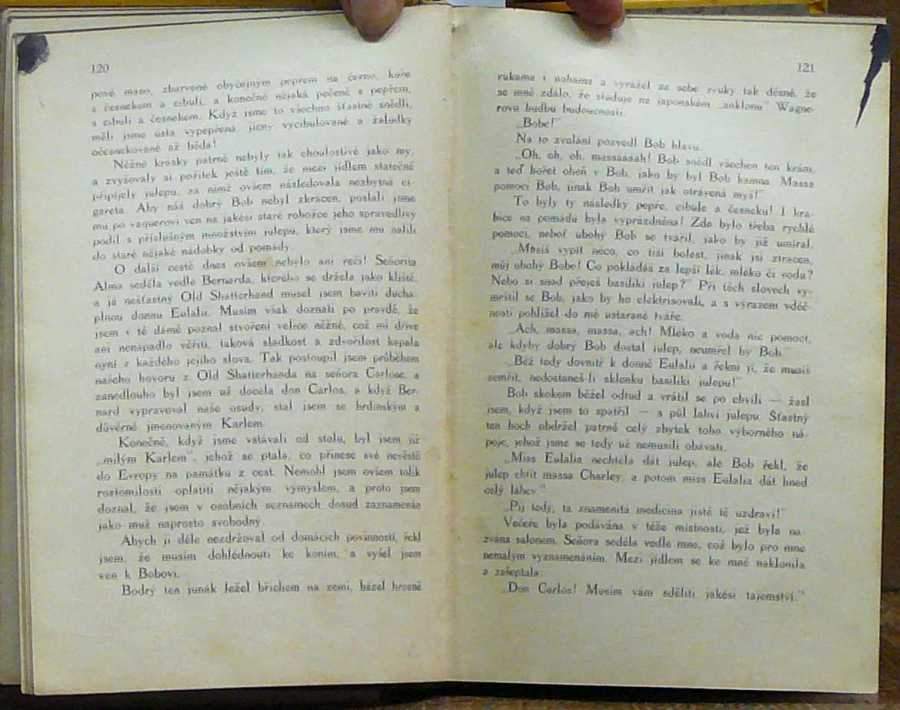 120
pové maso, zbarvené obyčejným pepřem na černo, kaše
s česnekem a cibulí, a konečně nějaká pečeně s pepřem,
s cibulí a česnekem. Když jsme to všechno šťastně snědli,
měli jsme ústa vypepřená, jícny vycibulované a žaludky
očesnekované až běda!
Něžné krásky patrně nebyly tak choulostivé jako my,
a zvyšovaly si požitek ještě tím, že mezi jídlem statečně
připíjely julepu, za nímž ovšem následovala nezbytná ci-
gareta. Aby náš dobrý Bob nebyl zkrácen, poslali jsme
mu po vaquerovi ven na jakési staré rohožce jeho spravedlivý
podíl s příslušným množstvím julepu, který jsme mu nalili
do staré nějaké nádobky od pomády.
O další cestě dnes ovšem nebylo ani řeči! Seňorita
Alma seděla vedle Bernarda, kterého se držela jako klíště,
a já nešťastný Old Shatterhand musel jsem baviti ducha-
plnou donnu Eulalii. Musím však doznati po pravdě, že
jsem v té dámě poznal stvoření velice něžné, což mi dříve
ani nenapadlo věřiti, taková sladkost a zdvořilost kapala
nyní z každého jejího slova. Tak postoupil jsem průběhem
našeho hovoru z Old Shatterhanda na seňora Carlose, a
zanedlouho byl jsem už docela don Carlos, a když Ber-
nard vypravoval naše osudy, stal jsem se hrdinským a
důvěrně jmenovaným Karlem.
Konečně, když jsme vstávali od stolu, byl jsem již
„milým Karlem“, jehož se ptala, co přinese své nevěstě
do Evropy na památku z cest. Nemohl jsem ovšem tolik
roztomilosti oplatiti nějakým výmyslem, a proto jsem
doznal, že jsem v osobních seznamech dosud zaznamenán
jako muž naprosto svobodný.
Abych ji déle nezdržoval od domácích povinností, řekl
jsem, že musím dohlédnouti ke koním, a vyšel jsem
ven k Bobovi.
Bodrý ten junák ležel břichem na zemi, házel hrozně
121
rukama i nohama a vyrážel ze sebe zvuky tak děsné, že
se mně zdálo, že studuje na japonském „anklonu“ Wagne-
rovu hudbu budoucnosti.
„Bobe!“
Na to zvolání pozvedl Bob hlavu.
„Oh, oh, oh, massaaaaah! Bob snědl všechen ten krám,
a teď hořet oheň v Bob, jako by byl Bob kamna. Massa
pomoci Bob, jinak Bob umřít jak otrávená myš!“
To byly ty následky pepře, cibule a česneku! I kra-
bice na pomádu byla vyprázdněna! Zde bylo třeba rychlé
pomoci, neboť ubohý Bob se tvářil, jako by již umíral.
„Musíš vypít něco, co tiší bolest, jinak jsi ztracen,
můj ubohý Bobe! Co pokládáš za lepší lék, mléko či vodu?
Nebo si snad přeješ basilikí julep?“ Při těch slovech vy-
mrštil se Bob, jako by ho elektrisovali, a s výrazem vděč-
nosti pohlížel do mé ustarané tváře.
„Ach, massa, massa, ach! Mléko a voda nic pomoci,
ale kdyby dobrý Bob dostal julep, neumřel by Bob.“
„Běž tedy dovnitř k donně Eulalii a řekni jí, že musíš
zemřít, nedostaneš-li sklenku basilikí julepu!“
Bob skokem běžel odtud a vrátil se po chvíli — žasl
jsem, když jsem to spatřil — s půl lahví julepu. Šťastný
ten hoch obdržel patrně celý zbytek toho výborného ná-
poje, jehož jsme se tedy už nemusili obávati.
„Miss Eulalia nechtěla dát julep, ale Bob řekl, že
julep chtít massa Charley, a potom miss Eulalia dát hned
celý láhev.“
„Pij tedy, ta znamenitá medicina jistě tě uzdraví!“
Večeře byla podávána v téže místnosti, jež byla na-
zvána salonem. Seňora seděla vedle mne, což bylo pro mne
nemalým vyznamenáním. Mezi jídlem se ke mně naklonila
a zašeptala:
„Don Carlos! Musím vám sděliti jakési tajemství.“